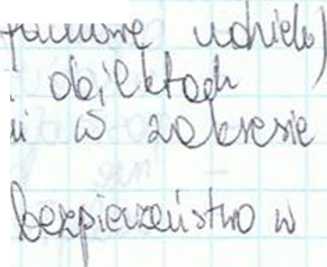 udziela)
obiektach
w zakresie
bezpieczeństwo w